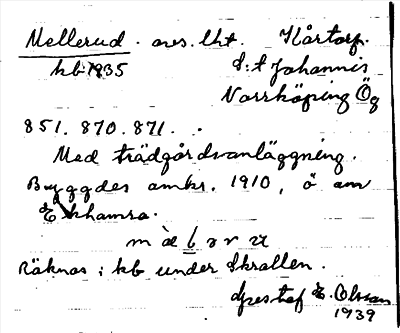 Mellerud. avs. lht. Hårtorp.
kb 1935 S:t Johannis
Norrköping Ög
851. 870. 871.
Med trädgårdsanläggning.
Byggdes omkr. 1910, ö om
Ekhamra.
Räknas i kb under Skrallen.
Gustaf E. Olsson
1939